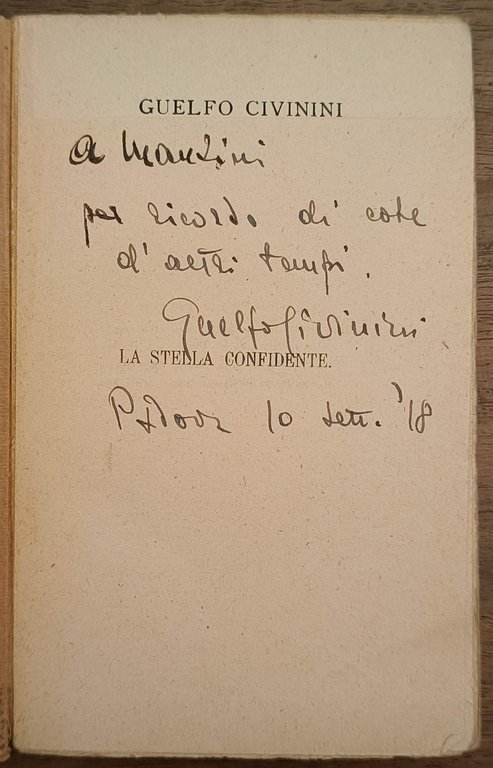 GUELFO CIVININI
a Manzini
per ricordo di cose
d'altri tempi.
Guelfo Civinini
LA STELLA CONFIDENTE.
Padova 10 sett. '18